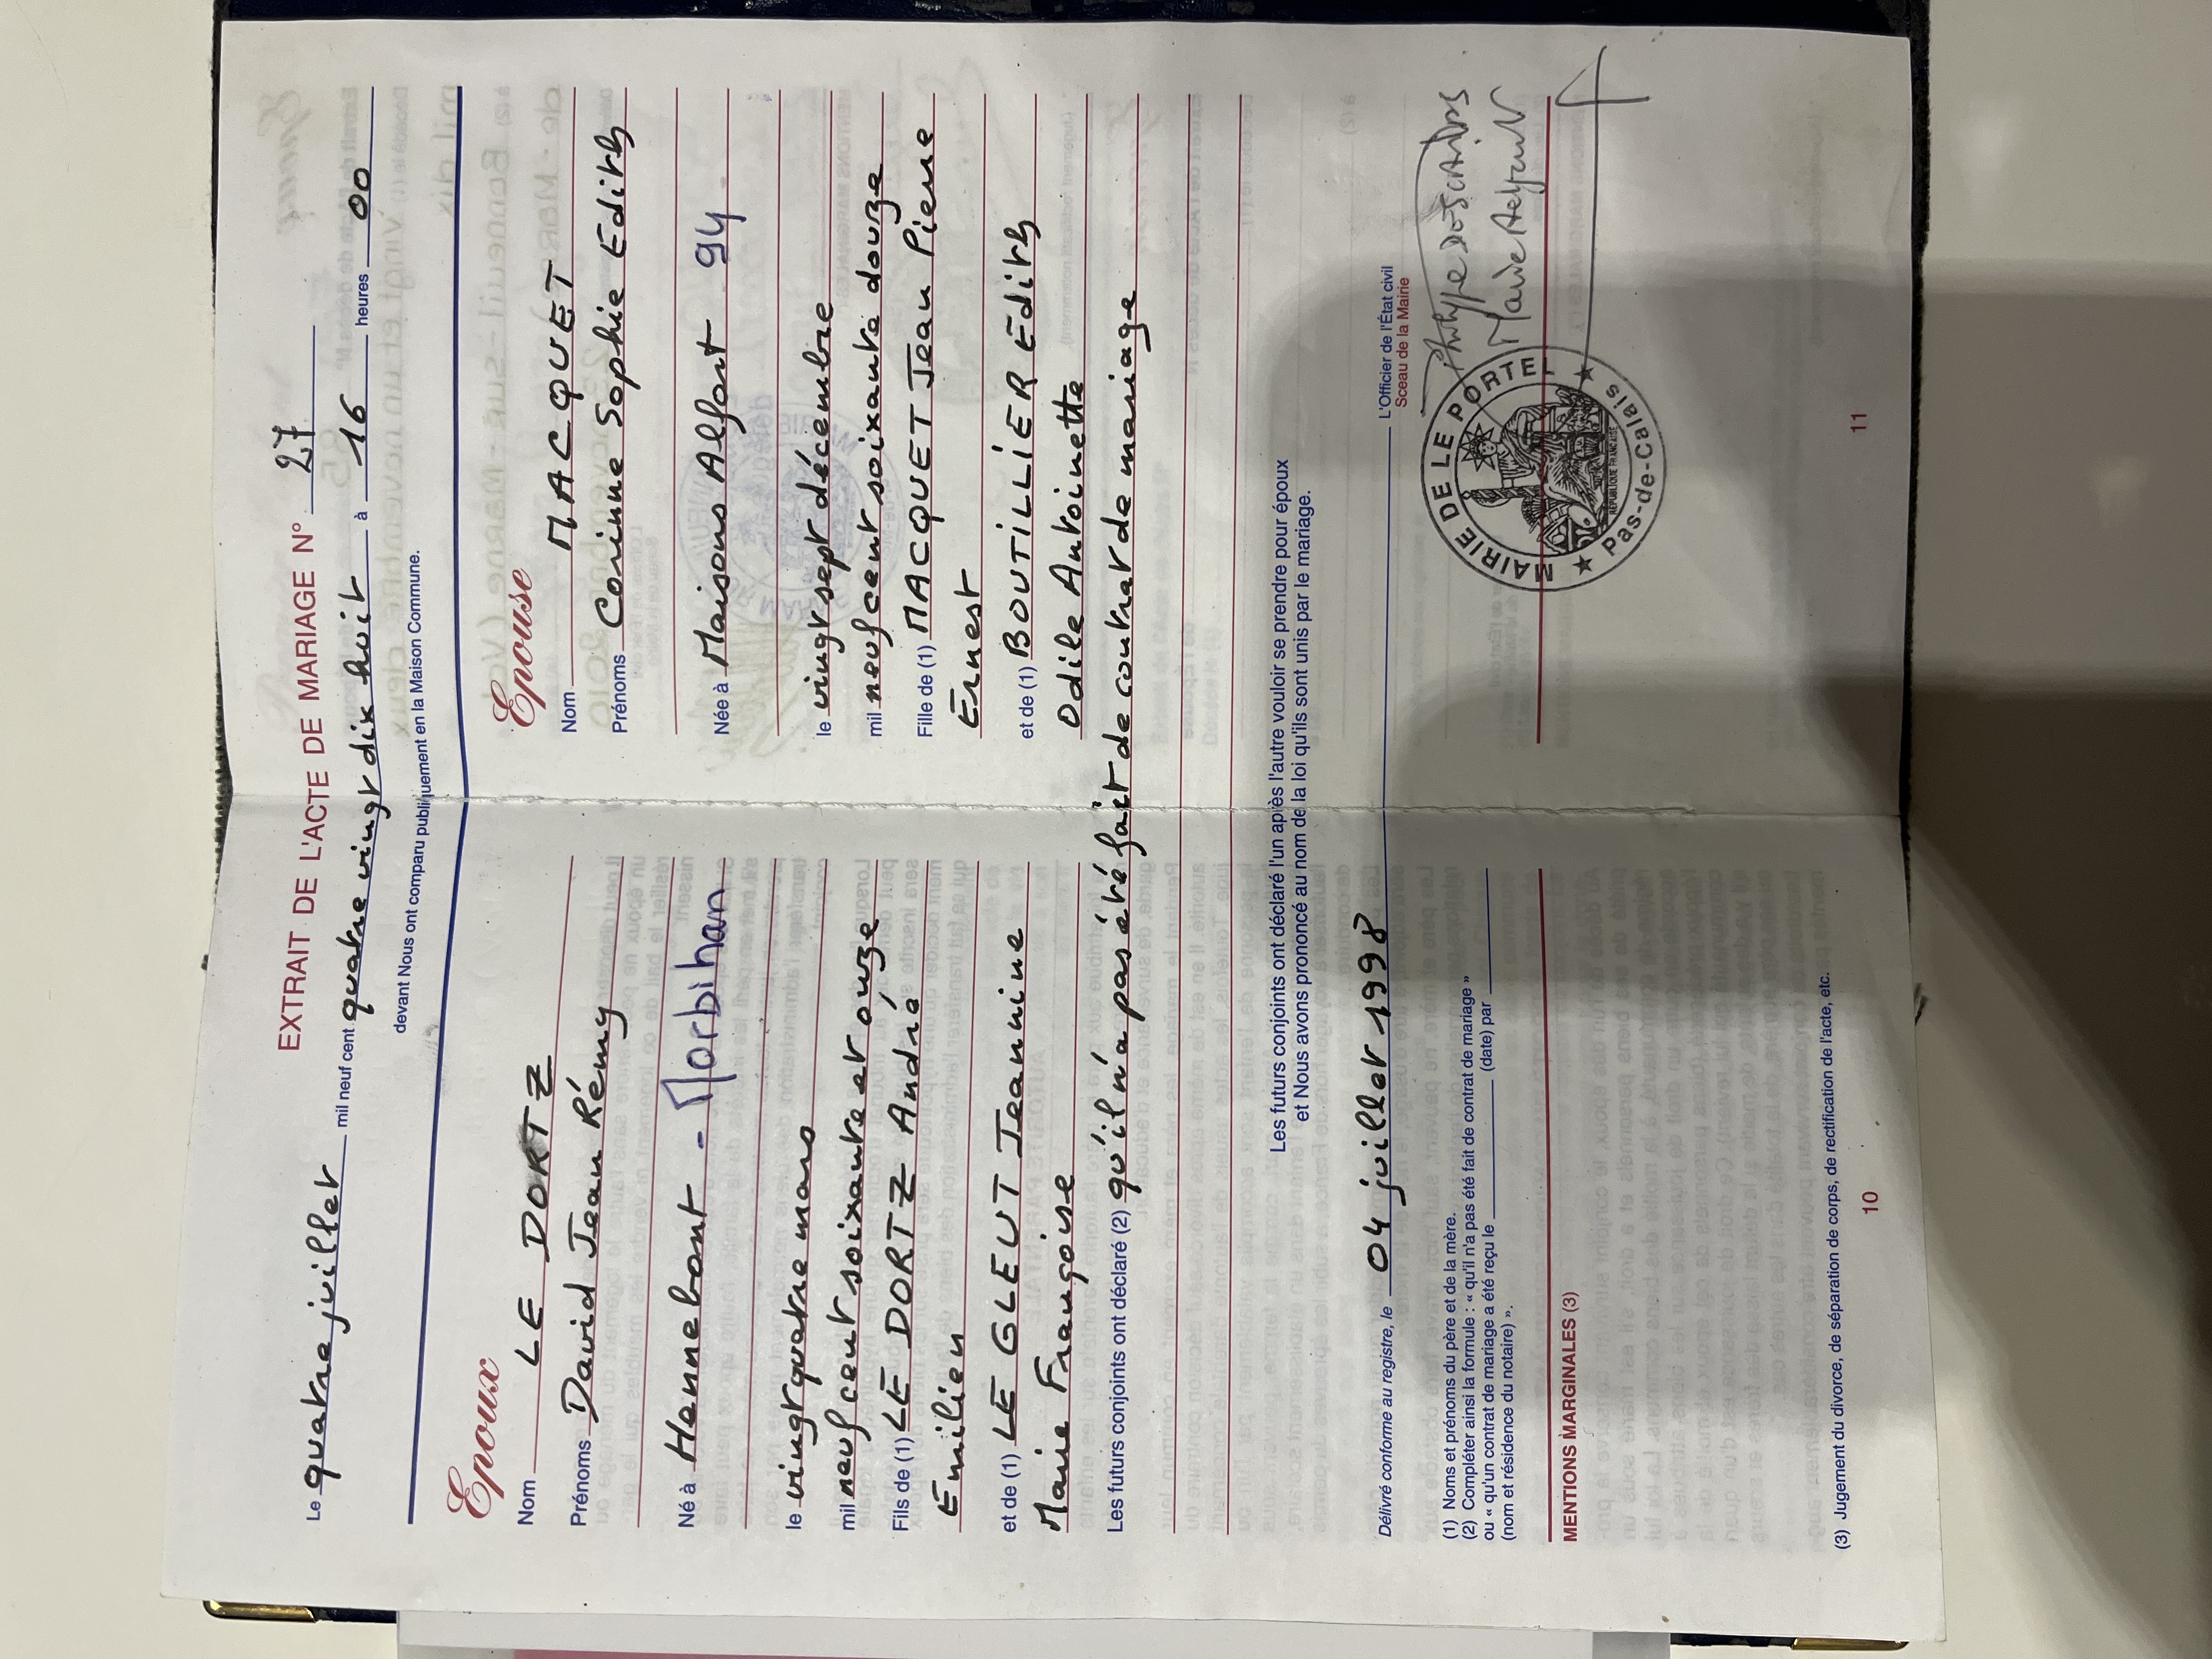 EXTRAIT DE L'ACTE DE MARIAGE N° 27
Le quatre juillet mil neuf cent quatre vingt dix huit à 16 heures 00
devant Nous ont comparu publiquement en la Maison Commune.
Epoux
Nom LE DORTZ
Prénoms David Jean Rémy
Né à Hennebont - Morbihan
le vingt quatre mars
mil neuf cent soixante et onze
Fils de (1) LE DORTZ André
Emilien
et de (1) LE GLEUT Jeannine
Marie Françoise
Epouse
Nom MACQUET
Prénoms Corinne Sophie Edith
Née à Maisons Alfort 94
le vingt sept décembre
mil neuf cent soixante douze
Fille de (1) MACQUET Jean Pierre
Ernest
et de (1) BOUTILLIER Edith
Odile Antoinette
Les futurs conjoints ont déclaré (2) qu'il n'a pas été fait de contrat de mariage
Les futurs conjoints ont déclaré l'un après l'autre vouloir se prendre pour époux
et Nous avons prononcé au nom de la loi qu'ils sont unis par le mariage.
Délivré conforme au registre, le 04 juillet 1998
L'Officier de l'État civil
Sceau de la Mairie
MAIRIE DE LE PORTEL
REPUBLIQUE FRANCAISE
Pas-de-Calais
(1) Noms et prénoms du père et de la mère.
(2) Compléter ainsi la formule : « qu'il n'a pas été fait de contrat de mariage »
ou « qu'un contrat de mariage a été reçu le (date) par
(nom et résidence du notaire) ».
MENTIONS MARGINALES (3)
(3) Jugement du divorce, de séparation de corps, de rectification de l'acte, etc.
10
11